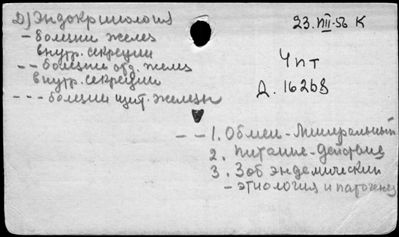 Д) Эндокринология
- болезни желез
внутр. секреции
- - болезни отд. желез
внутр. секреции
- - - болезни щит. железы
23.VIII-56 К
Чпт
Д. 16268
- - 1. Обмен - Минеральный
2. Питание - действие
3. Зоб эндемический
- этиология и патогенез